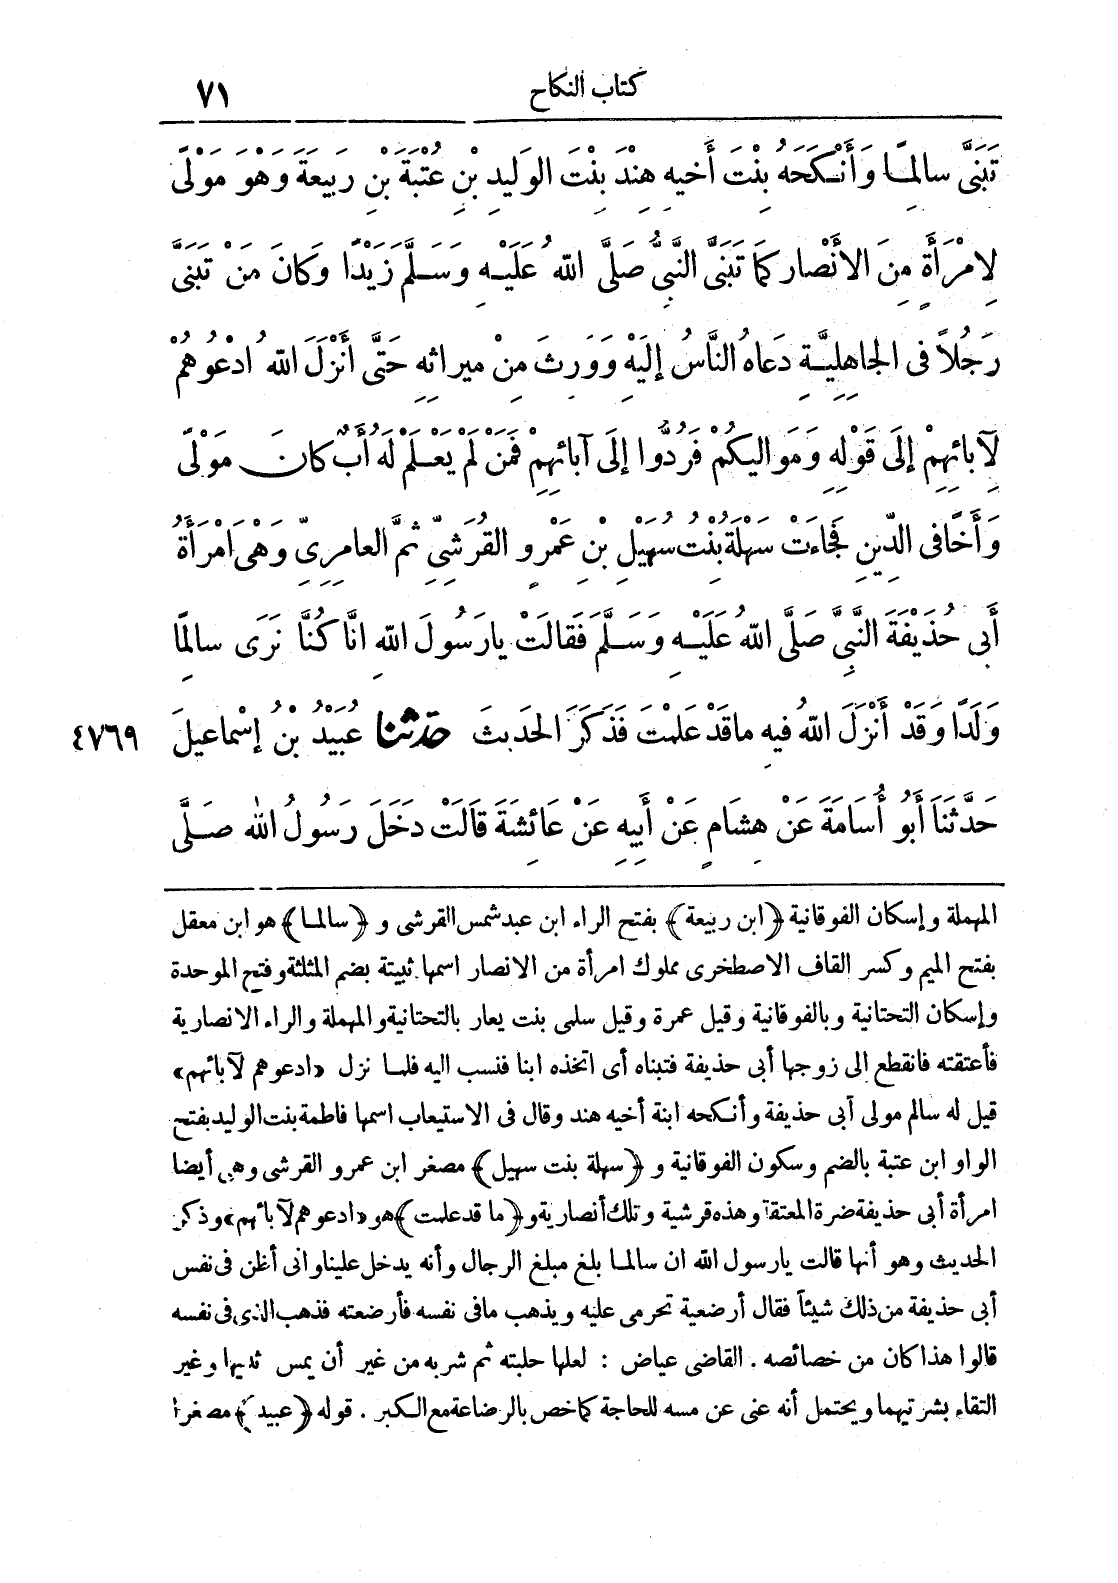 كتاب النكاح ٧١
تَبَنَّى سالِمًا وَأَنْكَحَهُ بِنْتَ أَخِيهِ هِنْدَ بِنْتَ الوَلِيدِ بْنِ عُتْبَةَ بْنِ رَبِيعَةَ وَهْوَ مَوْلًى
لِامْرَأَةٍ مِنَ الأَنْصارِ كَمَا تَبَنَّى النَّبِيُّ صَلَّى اللهُ عَلَيْهِ وَسَلَّمَ زَيْدًا وَكَانَ مَنْ تَبَنَّى
رَجُلًا فِى الجاهِلِيَّةِ دَعاهُ النَّاسُ إِلَيْهِ وَوَرِثَ مِنْ مِيراثِهِ حَتَّى أَنْزَلَ اللهُ ادْعُوهُمْ
لِآبائِهِمْ إِلَى قَوْلِهِ وَمَوالِيكُمْ فَرُدُّوا إِلَى آبائِهِمْ فَمَنْ لَمْ يَعْلَمْ لَهُ أَبٌ كانَ مَوْلًى
وَأَخًا فِى الدِّينِ فَجاءَتْ سَهْلَةُ بِنْتُ سُهَيْلِ بْنِ عَمْرٍو القُرَشِىِّ ثُمَّ العامِرِىِّ وَهْىَ امْرَأَةُ
أَبِى حُذَيْفَةَ النَّبِيَّ صَلَّى اللهُ عَلَيْهِ وَسَلَّمَ فَقَالَتْ يارَسُولَ اللهِ انَّا كُنَّا نَرَى سالِمًا
وَلَدًا وَقَدْ أَنْزَلَ اللهُ فِيهِ ماقَدْ عَلِمْتَ فَذَكَرَ الحَدِيثَ حدثنا عُبَيْدُ بْنُ إِسْماعِيلَ ٤٧٦٩
حَدَّثَنَا أَبُو أُسَامَةَ عَنْ هِشَامٍ عَنْ أَبِيهِ عَنْ عَائِشَةَ قَالَتْ دَخَلَ رَسُولُ اللهِ صَلَّى
المهملة وإسكان الفوقانية ﴿ابن ربيعة﴾ بفتح الراء ابن عبد شمس القرشى و ﴿سالما﴾ هو ابن معقل
بفتح الميم وكسر القاف الاصطخرى مملوك امرأة من الانصار اسمها ثبيتة بضم المثلثة وفتح الموحدة
وإسكان التحتانية وبالفوقانية وقيل عمرة وقيل سلمى بنت يعار بالتحتانية والمهملة والراء الانصارية
فأعتقته فانقطع إلى زوجها أبى حذيفة فتبناه أى اتخذه ابنا فنسب اليه فلما نزل «ادعوهم لآبائهم»
قيل له سالم مولى أبى حذيفة وأنكحه ابنة أخيه هند وقال فى الاستيعاب اسمها فاطمة بنت الوليد بفتح
الواو ابن عتبة بالضم وسكون الفوقانية و ﴿سهلة بنت سهيل﴾ مصغر ابن عمرو القرشى وهى أيضا
امرأة أبى حذيفة ضرة المعتقة وهذه قرشية وتلك أنصارية و﴿ما قد علمت﴾ هو «ادعوهم لآبائهم» وذكر
الحديث وهو أنها قالت يارسول الله ان سالما بلغ مبلغ الرجال وأنه يدخل علينا وانى أظن فى نفس
أبى حذيفة من ذلك شيئاً فقال أرضعية تحرمى عليه ويذهب مافى نفسه فأرضعته فذهب الذى فى نفسه
قالوا هذا كان من خصائصه . القاضى عياض : لعلها حلبته ثم شربه من غير أن يمس ثديها وغير
التقاء بشرتيهما ويحتمل أنه عنى عن مسه للحاجة كما خص بالرضاعة مع الكبر . قوله ﴿عبيد﴾ مصغرا